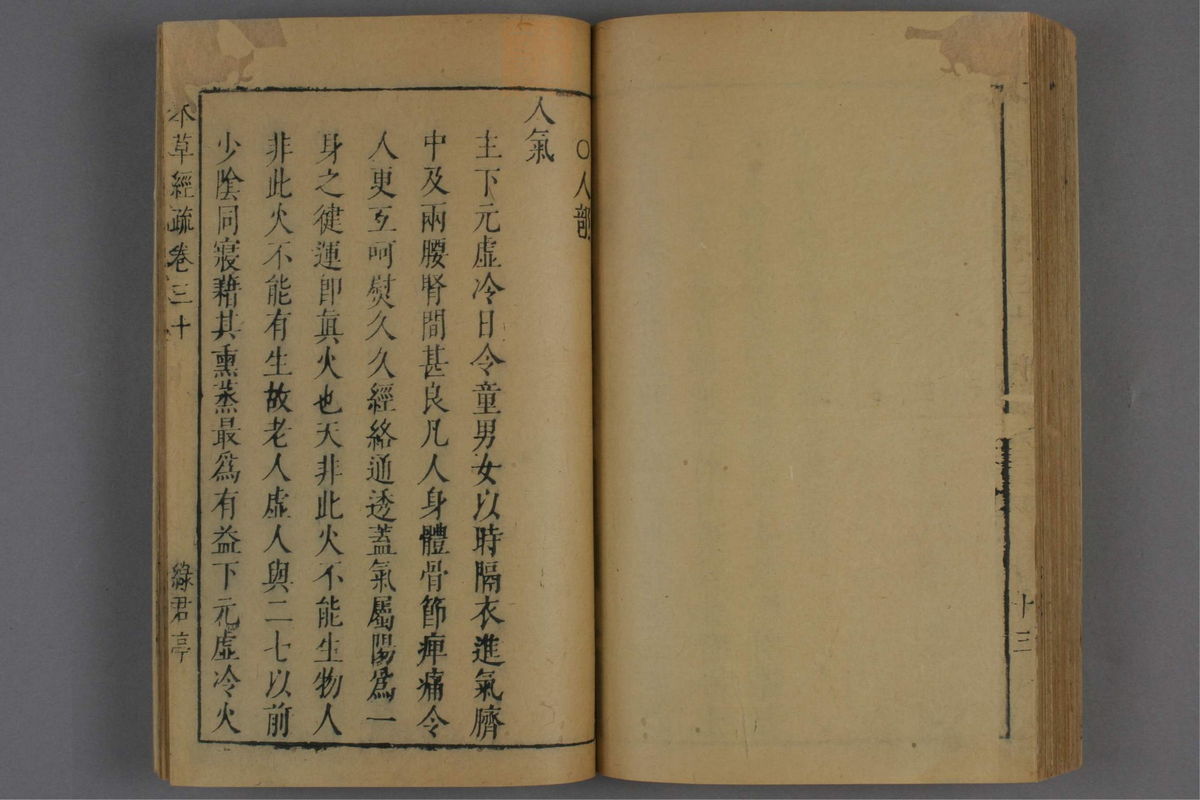 十三
○人部
人氣
主下元虛冷日令童男女以時隔衣進氣臍
中及兩腰腎間甚良凡人身體骨節痺痛令
人更互呵熨久久經絡通透蓋氣屬陽爲一
身之健運卽眞火也天非此火不能生物人
非此火不能有生故老人虛人與二七以前
少陰同寢藉其熏蒸最爲有益下元虛冷火
本草經疏卷三十
綠君亭